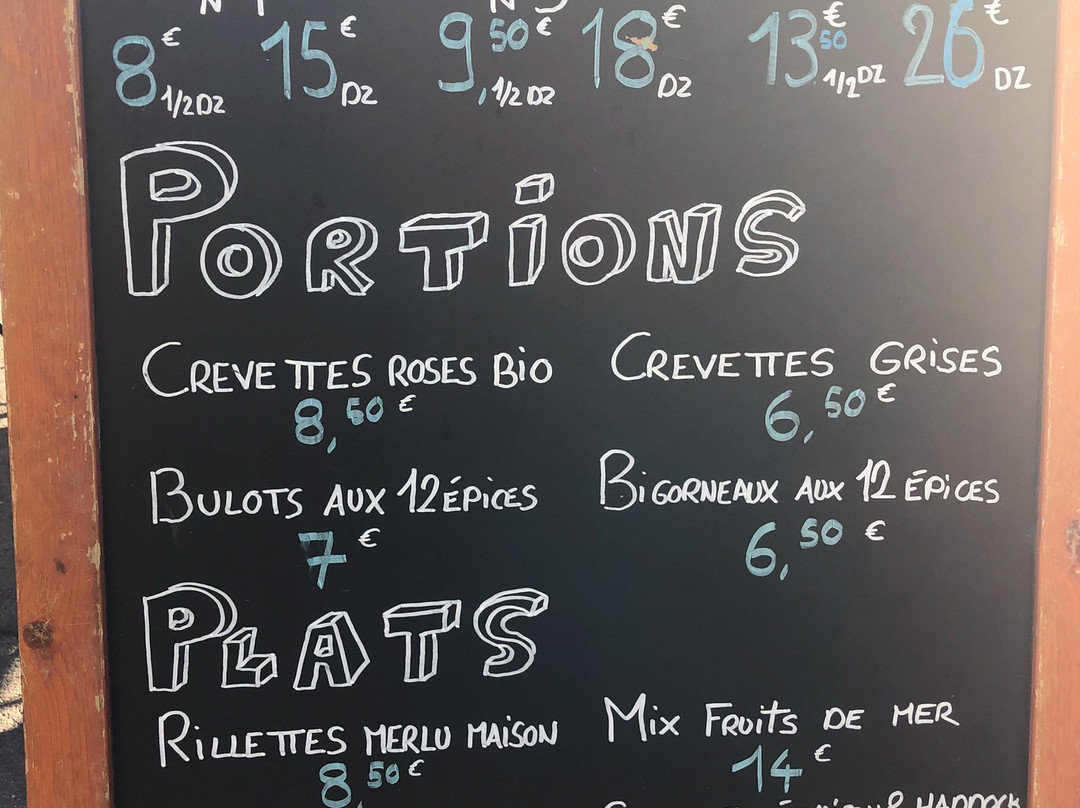 8€ 1/2 DZ 15€ DZ 9,50€ 1/2 DZ 18€ DZ 13€50 1/2 DZ 26€ DZ
PORTiONS
CREVETTES ROSES BiO CREVETTES GRiSES
8,50€ 6,50€
BULOTS AUX 12 ÉPiCES BiGORNEAUX AUX 12 ÉPiCES
7€ 6,50€
PLATS
RiLLETTES MERLU MAiSON Mix FRUiTS DE MER
8,50€ 14€
HADDOCK